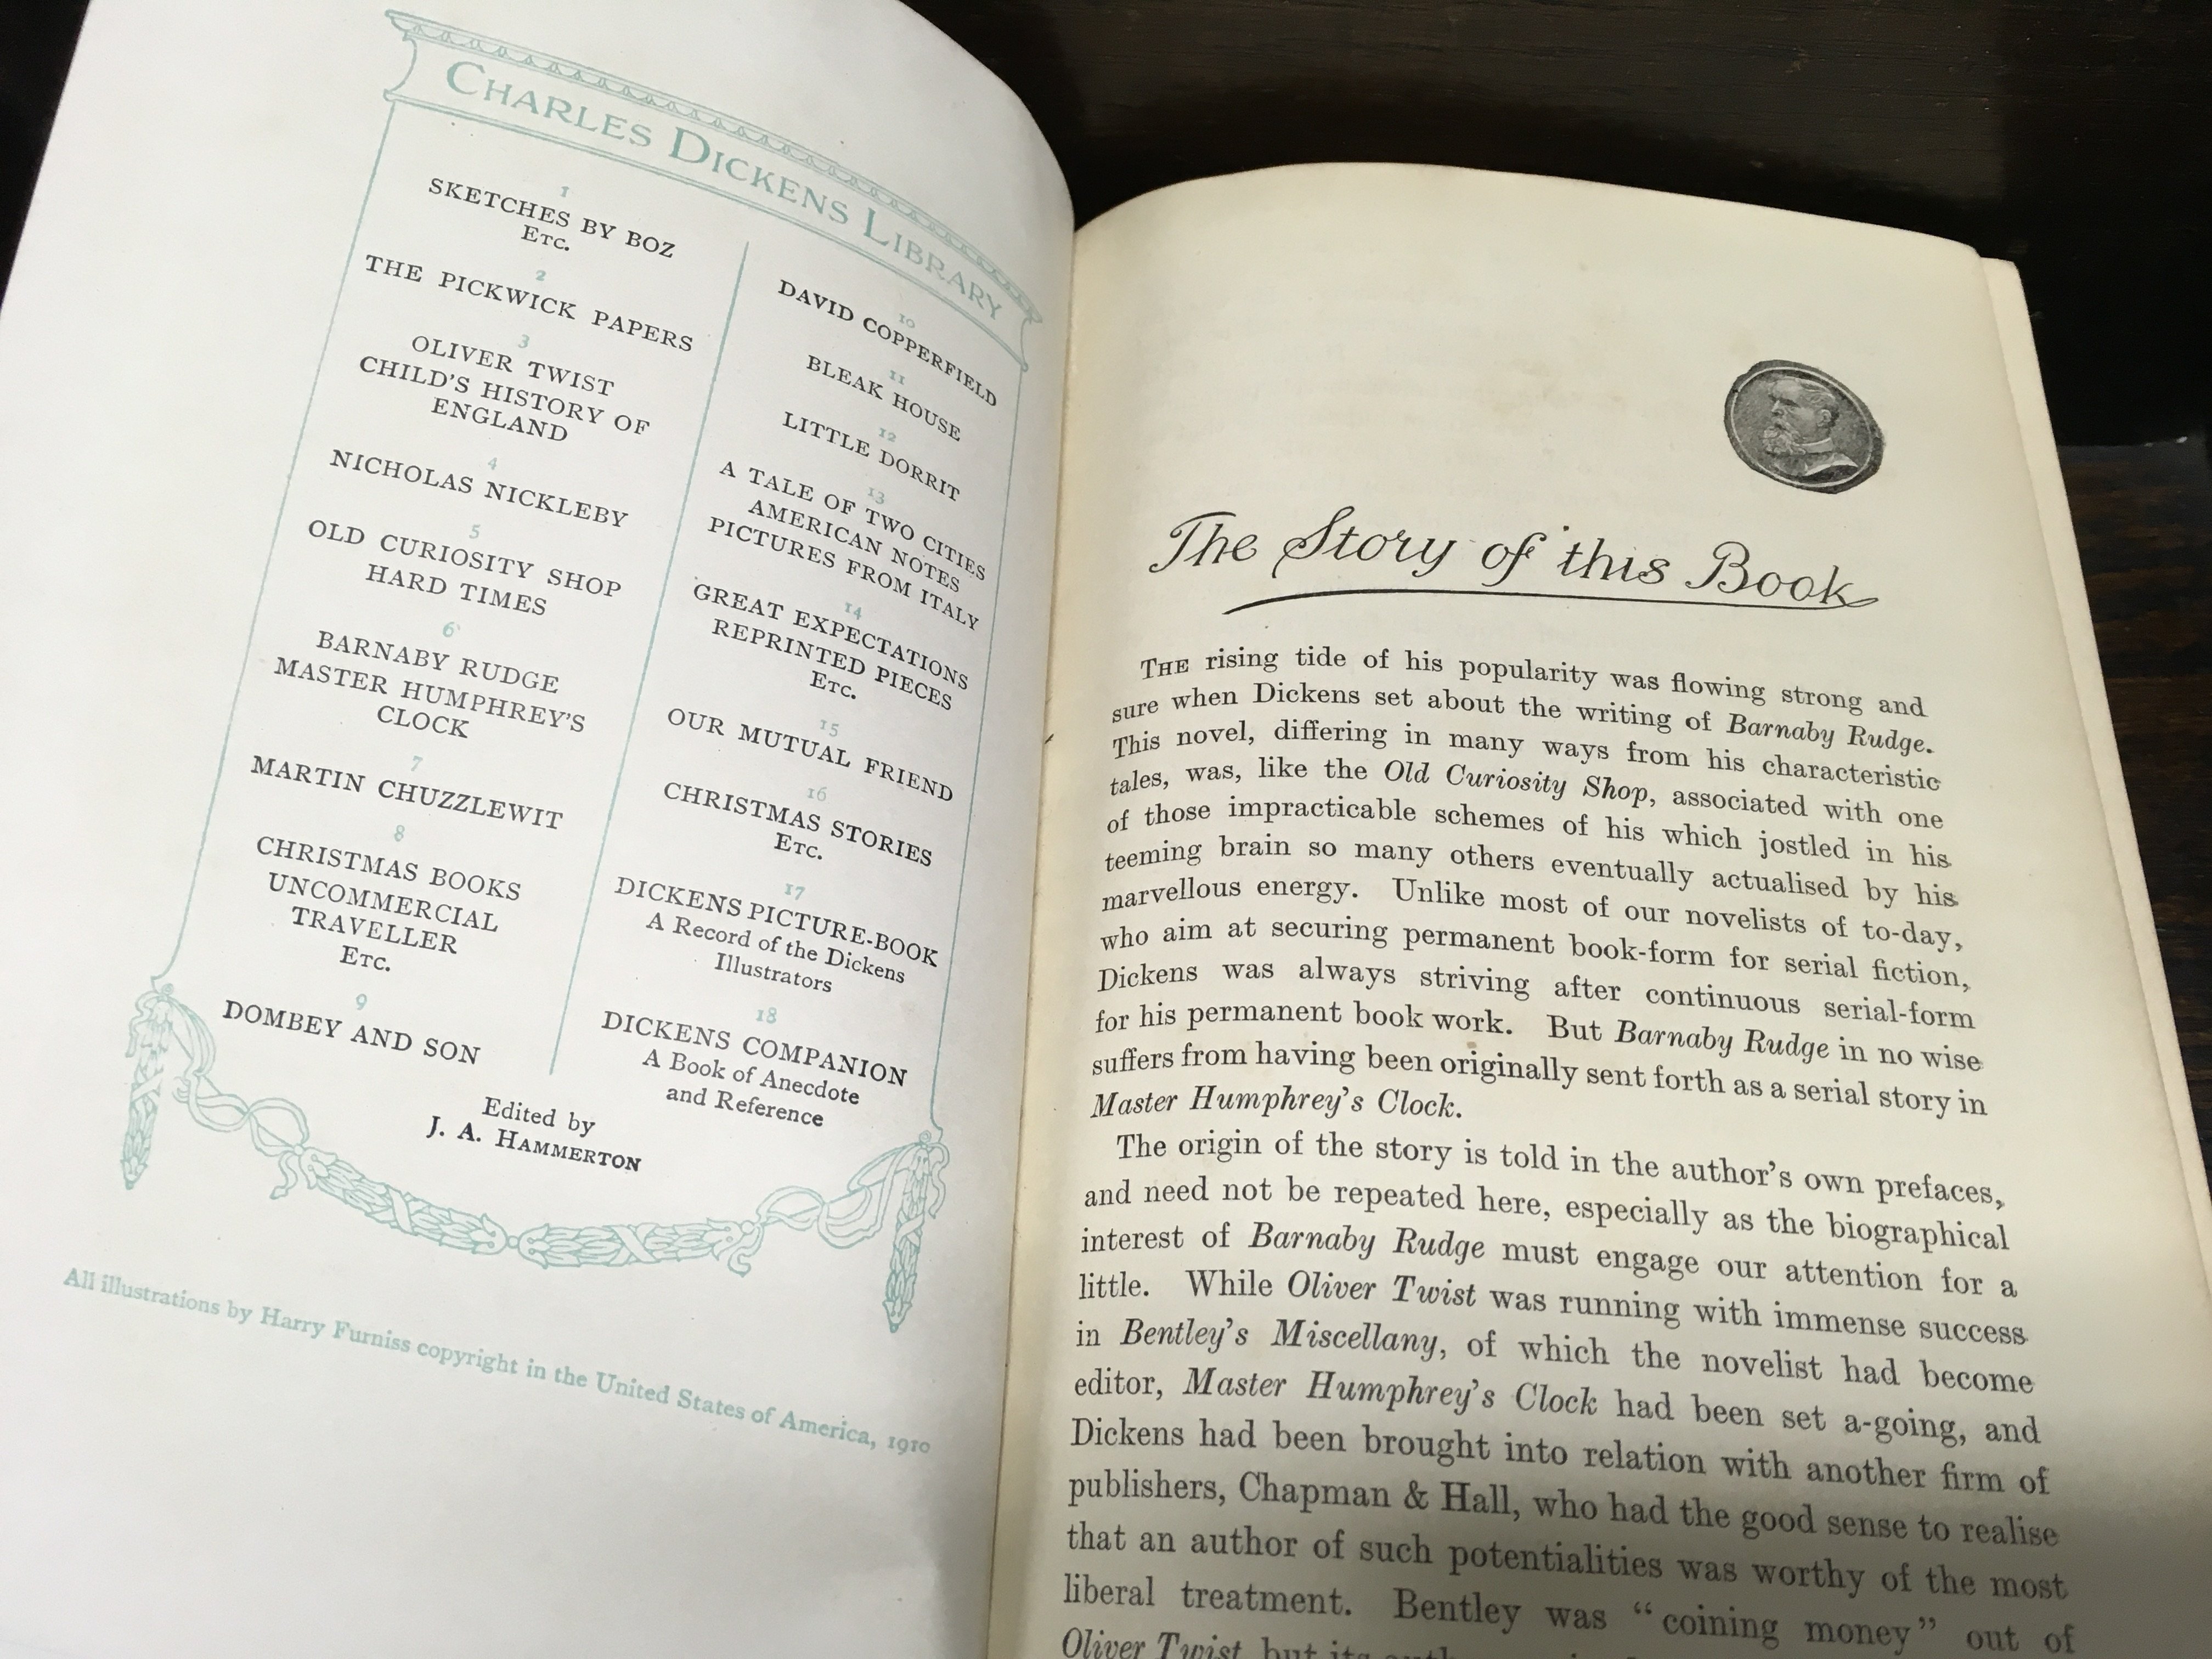 CHARLES DICKENS LIBRARY
1
SKETCHES BY BOZ
ETC.
2
THE PICKWICK PAPERS
3
OLIVER TWIST
CHILD'S HISTORY OF
ENGLAND
4
NICHOLAS NICKLEBY
5
OLD CURIOSITY SHOP
HARD TIMES
6
BARNABY RUDGE
MASTER HUMPHREY'S
CLOCK
7
MARTIN CHUZZLEWIT
8
CHRISTMAS BOOKS
UNCOMMERCIAL
TRAVELLER
ETC.
9
DOMBEY AND SON
10
DAVID COPPERFIELD
11
BLEAK HOUSE
12
LITTLE DORRIT
13
A TALE OF TWO CITIES
AMERICAN NOTES
PICTURES FROM ITALY
14
GREAT EXPECTATIONS
REPRINTED PIECES
ETC.
15
OUR MUTUAL FRIEND
16
CHRISTMAS STORIES
ETC.
17
DICKENS PICTURE-BOOK
A Record of the Dickens
Illustrators
18
DICKENS COMPANION
A Book of Anecdote
and Reference
Edited by
J. A. HAMMERTON
All illustrations by Harry Furniss copyright in the United States of America, 1910
The Story of this Book
THE rising tide of his popularity was flowing strong and
sure when Dickens set about the writing of Barnaby Rudge.
This novel, differing in many ways from his characteristic
tales, was, like the Old Curiosity Shop, associated with one
of those impracticable schemes of his which jostled in his
teeming brain so many others eventually actualised by his
marvellous energy. Unlike most of our novelists of to-day,
who aim at securing permanent book-form for serial fiction,
Dickens was always striving after continuous serial-form
for his permanent book work. But Barnaby Rudge in no wise
suffers from having been originally sent forth as a serial story in
Master Humphrey's Clock.
The origin of the story is told in the author's own prefaces,
and need not be repeated here, especially as the biographical
interest of Barnaby Rudge must engage our attention for a
little. While Oliver Twist was running with immense success
in Bentley's Miscellany, of which the novelist had become
editor, Master Humphrey's Clock had been set a-going, and
Dickens had been brought into relation with another firm of
publishers, Chapman & Hall, who had the good sense to realise
that an author of such potentialities was worthy of the most
liberal treatment. Bentley was "coining money" out of
Oliver Twist, but its